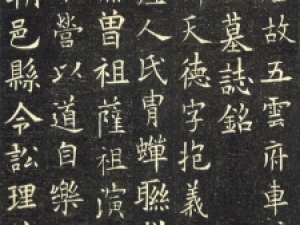 故五雲府車
墓誌銘
天德字抱義
人氏冑蟬聯
曾祖薩祖演
營以道自樂
邑縣令訟理